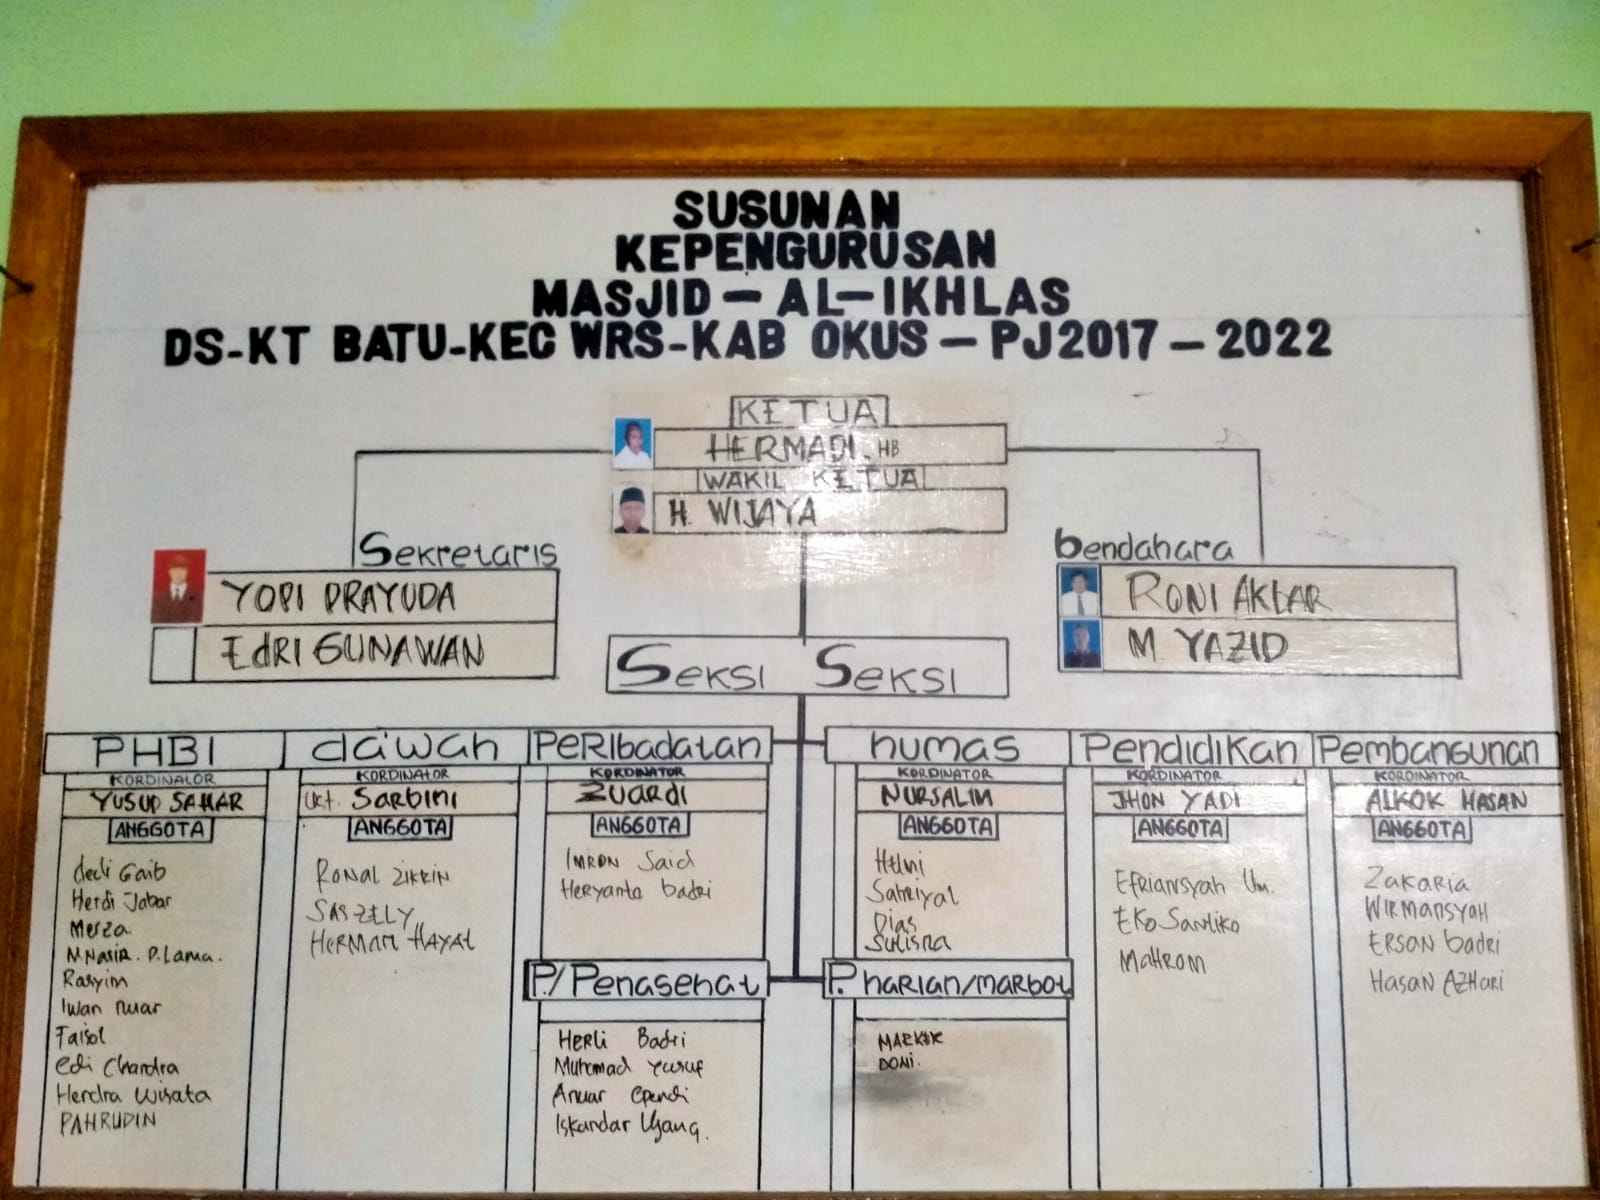 SUSUNAN
KEPENGURUSAN
MASJID - AL-IKHLAS
DS-KT BATU-KEC WRS-KAB OKUS - PJ2017 - 2022
KETUA
HERMADI. HB
WAKIL KETUA
H. WIJAYA
Sekretaris
YOPI PRAYUDA
EdRI GUNAWAN
bendahara
RONI AKBAR
M. YAZID
SEKSI SEKSI
PHBI
KORDINATOR
YUSUP SAHAR
ANGGOTA
dedi Gaib
Herdi Jabar
Merza
M.Nasir. P.Lama.
Rasyim
Iwan nuar
Faisol
edi Chandra
Hendra wisata
PAHRUDIN
da'wah
KORDINATOR
Ust. Sarbini
ANGGOTA
Ronal ZIKRIN
SASZELY
HERMAN HAYAT
PERIbadatan
KORDINATOR
Zuardi
ANGGOTA
IMRON Said
Heryanto badri
humas
KORDINATOR
NURSALIM
ANGGOTA
Helmi
Sahriyal
Dias
Sutisna
Pendidikan
KORDINATOR
JHON YADI
ANGGOTA
Efriansyah Um.
EKO Santiko
MaHROM
Pembangunan
KORDINATOR
ALKOK HASAN
ANGGOTA
Zakaria
WIRMANSYAH
ERSAN badri
Hasan AZHari
P/Penasehat
HERLi Badri
Muhamad Yusuf
Anuar Ependi
Iskandar Ugang.
P. harian/marbot
MARKEK
DONI.